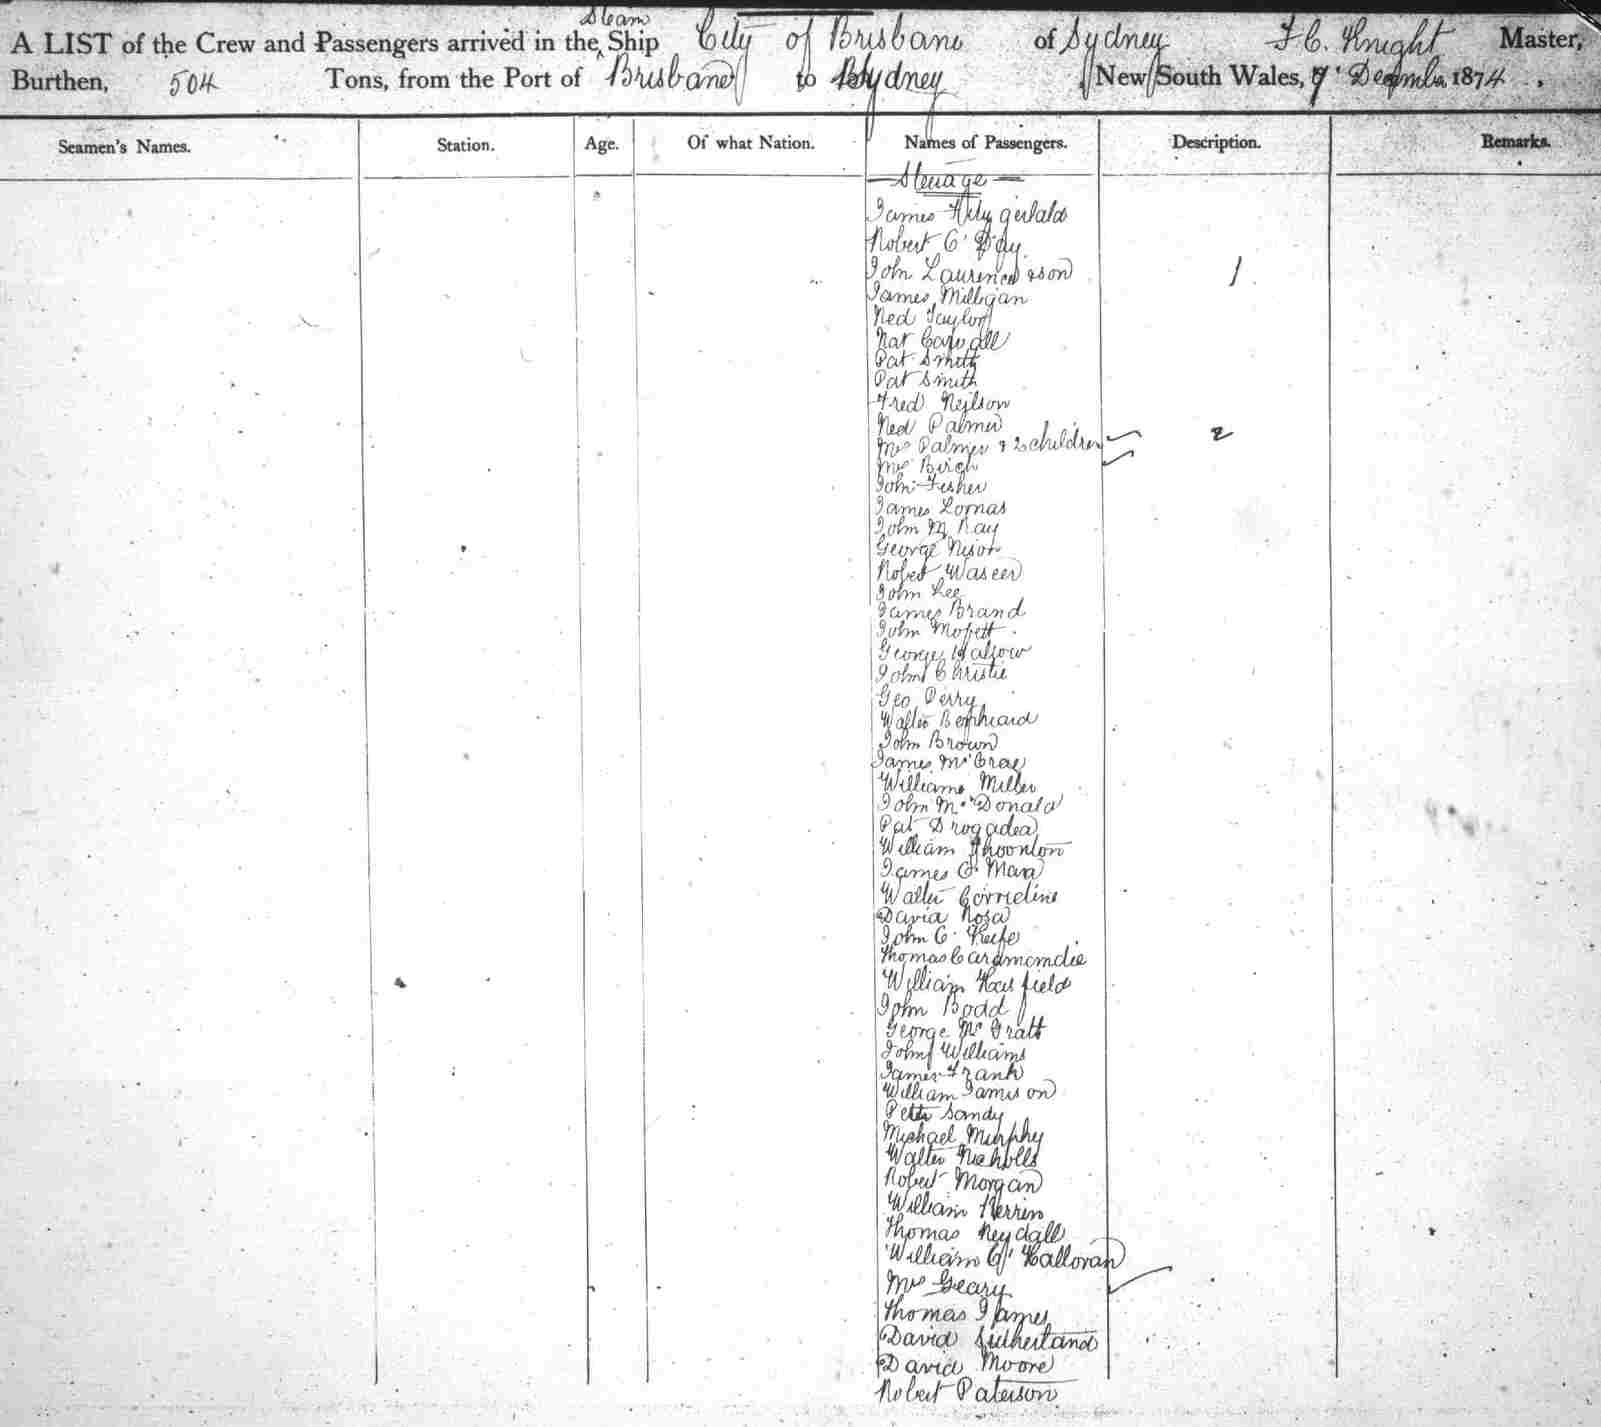 Steam
A LIST of the Crew and Passengers arrived in the Ship City of Brisbane of Sydney F C. Knight Master,
Burthen, 504 Tons, from the Port of Brisbane to Sydney New South Wales, 7 December 1874
Seamen's Names. Station. Age. Of what Nation. Names of Passengers. Description. Remarks.
Steerage
James Fitzgerlald
Robert O' Day
John Laurence & son 1
James Milligan
Ned Taylor
Nat
Pat Smith
Pat Smith
Fred Neilson
Ned Palmer
Mrs Palmer & 2 children 2
Mrs Birch
John Fisher
James Lomas
John Mc Kay
George Nixon
Robert
John Lee
James Brand
John Moffett
George
John Christie
Geo Perry
Walter
John Brown
James McCrae
William Miller
John McDonald
Pat
William Thoonton
James O' Mara
Walter Corrideine
David Rosa
John O' Keife
Thomas
William
John Bodd
George Mc Gratt
John Williams
James Frank
William Jamison
Peter Sandy
Michael Murphy
Walter Nicholls
Robert Morgan
William Perrin
Thomas
William O' Halloran
Mrs Geary
Thomas James
David Sutherland
David Moore
Robert Paterson